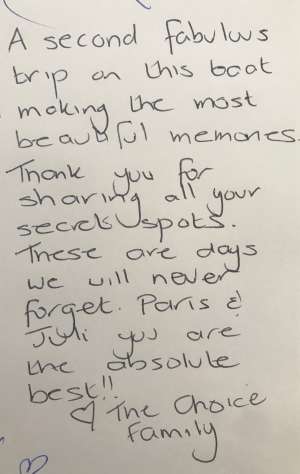 A second fabulous
trip on this boat
making the most
beautiful memories.
Thank you for
sharing all your
secret spots.
These are days
we will never
forget. Paris &
Juli you are
the absolute
best!!
♡ The Choice
Family